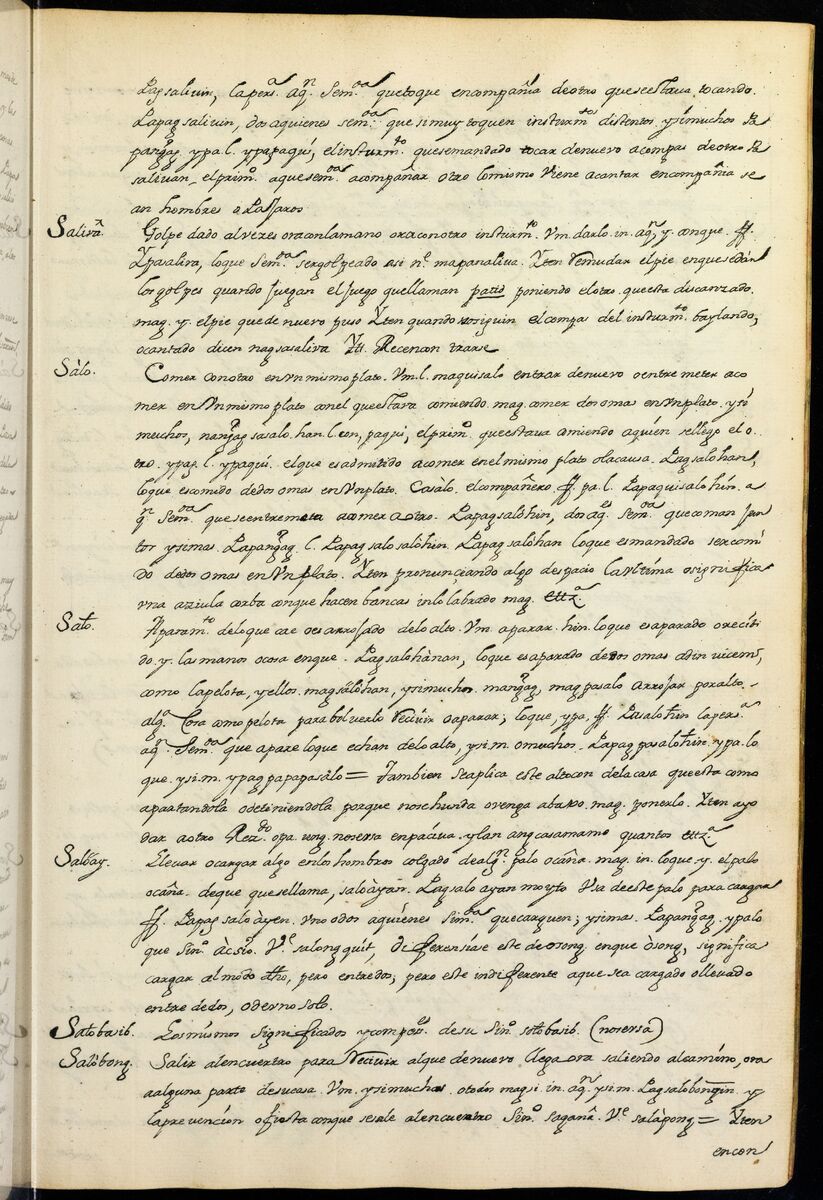 Pagsalivin, lapers.ª aq.n Sem.da quetoque encompañia deotro queseestava tocando.
Papagsalivin, dos aquienes sem.da que simuy toquen insturm.tos distentos, ysimuchos Pa
pangag ypa. l. ypapagui, elinsturm.to quesemandado tocar denuevo acompas deotro Pa
salivan, elprim.o aquesem.da acompañar otro lomismo viene acantar encompañia se
an hombres o Passaros
Saliva. Golpe dado alverés oraconlamano oraconotro insturm.to. Vm. darlo. in. aq.n, y. conque. ff.
Ypasaliva, loque Sem.da sergolpeado asi n.e mapanaliva. Yten Vemudar elpie enquesedán
losgolpes quando juegan el juego quellaman patid poniendo elotro questa discanzado.
mag. y. elpie quede nuevo puso Yten quando vosiguin elcompas del insturm.to baylando,
ocantado dicen nagsasaliva Yt. Recencon trarse
Sálo. Comer conotro en Vnmismo plato. Vm. l. maquisalo entrar denuevo oentre meter aco
mer en Vnmismo plato conel queestava comiendo. mag. comer dos omas en Vnplato. ysi
muchos, nangagsasalo. han. l. con, paqui, elprim.o queestava comiendo aquien sellego elo.
tro. ypag. l. ypaqui. el que esadmitido acomer enelmismo plato olacausa. Pagsalohan,
loque escomido dedos omas en Vnplato. Casàlo. elcompañero ff pa. l. Papaquisalo hin. a
q.n Sem.da queseentremeta acomer aotro. Papagsalohin, dos aq.es Sem.da quecoman jun
tos ysimas. Papangag. l. Papagsalosalohin. Papagsalohan loque esmandado sercomi
do dedos omas en Vnplato. Yten pronunciando algo despacio laultima osignifica
vna azuela corba conque hacen bancas inlolabrado mag. ettz.ª
Salo. Aparam.to deloque cae oesarrojado delo alto. Vm. aparar. hin. loque esaparado orecibi
do. y. las manos ocosa enque. Pagsalohànan, loque esaparado dedos omas adin vicem,
como lapelota, yellos. magsálohan, ysimuchos. mangag, magpasalo arrójar poralto.
alg.ª Cosa como pelota para bolverlo Vecivir oaparar; loque, ypa. ff. Pasalohin lapers.ª
aq.n Sem.da que apare loque echan delo alto, ysi. m. omuchos. Papagpasalohin. ypa. lo
que. ysi. m. ypagpapapasálo = Tambien seaplica este altocon delacasa questa como
apartandola odeteniendola porque noschunda ovenga abaxo. mag. ponerlo. Yten ayo
dar aotro Rez.do opa. ung. noserva enpaciva. ylan angcasamamo quantos ettz.ª
Salóay. Llevar ocargar algo enlos hombros colgado dealg.n palo ocaña. mag. in. loque. y. elpalo
ocaña. deque quesellama, saloàyan. Pagsalo ayan moyto Usa deeste palo para cargar
ff. Papagsaloàyen. vno odos aquiénes Sim.da quecarguen; ysimas. Papangag. ypalo
que Sin.o àcsio. V.e salongquit, diferensiase este deosong. enque òsong, significa
cargar almodo dho, pero entredos; pero este indiferente aque sea cargado ollevado
entre dedos, oderno solo.
Salobasib. Losmismos Significados ycompoes. de su Sin.o solobasib. (noserva)
Salóbong. Salir alencuentro para Vecivir alque denuevo llega ora saliendo alcamino, ora
aalguna parte desucasa. Vm. ysimuchos. otodos magsi. in. aq.n ysi. m. Pagsalobongin. y
laprevención ofiesta conque sesale alencuentro Sin.o saganâ. V.e salàpong = Yten
encon